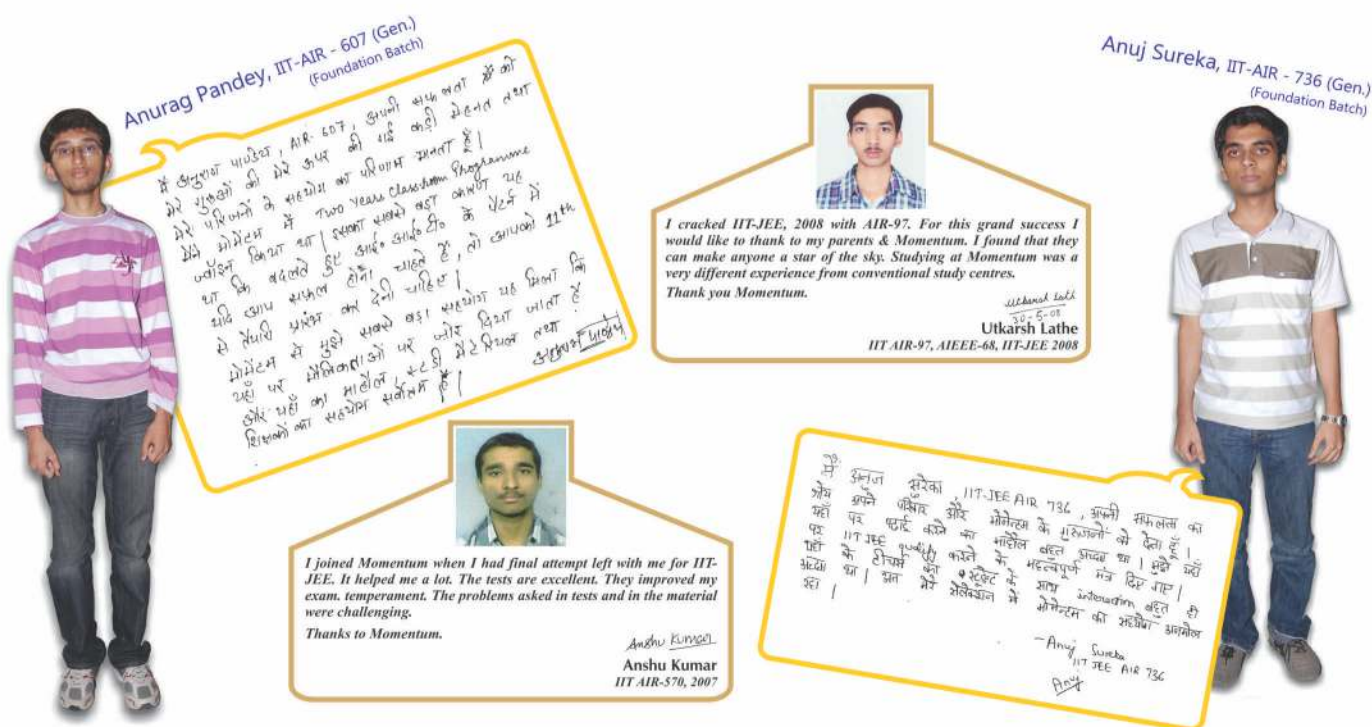 Anurag Pandey, IIT-AIR - 607 (Gen.)
(Foundation Batch)
मैं अनुराग पाण्डेय, AIR-607, अपनी सफलता को
मेरे गुरुओं की मेरे ऊपर की गई कड़ी मेहनत तथा
मेरे परिजनों के सहयोग का परिणाम मानता हूँ।
मैंने मोमेंटम में Two Years Classroom Programme
ज्वॉइन किया था। इसका सबसे बड़ा कारण यह
था कि बदलते हुए आई० आई० टी० के पैटर्न में
यदि आप सफल होना चाहते हैं, तो आपको 11th
से तैयारी प्रारंभ कर देनी चाहिए।
मोमेंटम से मुझे सबसे बड़ा सहयोग यह मिला कि
यहाँ पर मौलिकताओं पर जोर दिया जाता है
और यहाँ का माहौल, स्टडी मैटेरियल तथा
शिक्षकों का सहयोग सर्वोत्तम है।
अनुराग पाण्डेय
I cracked IIT-JEE, 2008 with AIR-97. For this grand success I
would like to thank to my parents & Momentum. I found that they
can make anyone a star of the sky. Studying at Momentum was a
very different experience from conventional study centres.
Thank you Momentum.
Utkarsh Lathe
30-5-08
Utkarsh Lathe
IIT AIR-97, AIEEE-68, IIT-JEE 2008
Anuj Sureka, IIT-AIR - 736 (Gen.)
(Foundation Batch)
I joined Momentum when I had final attempt left with me for IIT-
JEE. It helped me a lot. The tests are excellent. They improved my
exam. temperament. The problems asked in tests and in the material
were challenging.
Thanks to Momentum.
Anshu Kumar
Anshu Kumar
IIT AIR-570, 2007
मैं अनुज सुरेका, IIT-JEE AIR 736, अपनी सफलता का
श्रेय अपने परिवार और मोमेन्टम के गुरुजनों को देता हूँ।
यहाँ पर पढ़ाई करने का माहौल बहुत अच्छा था। मुझे यहाँ
पर IIT JEE qualify करने के महत्वपूर्ण मंत्र दिए गए।
यहाँ के टीचर्स का स्टूडेंट के साथ interaction बहुत ही
अच्छा था। अतः मेरे सेलेक्शन में मोमेन्टम का सहयोग अनमोल
रहा।
-Anuj Sureka
IIT JEE AIR 736
Anuj